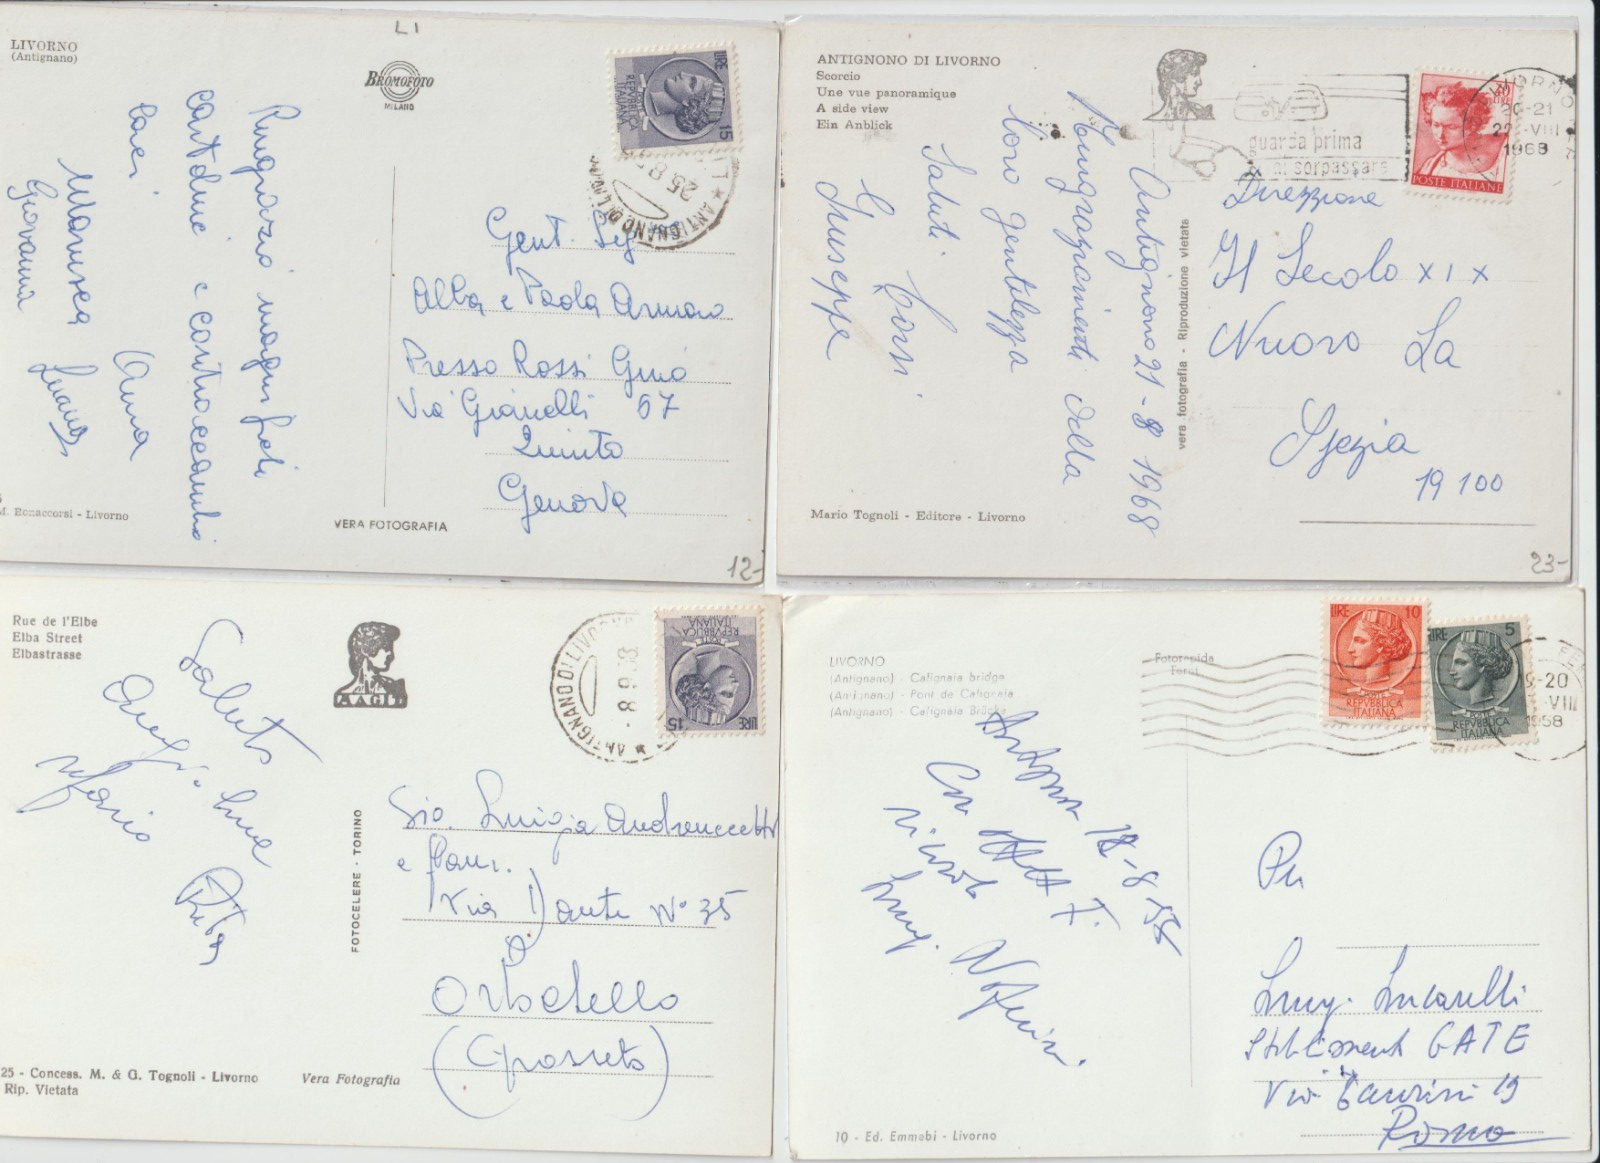 LIVORNO
(Antignano)
L1
BROMOFOTO
MILANO
LIRE 15
REPVBBLICA
ITALIANA
ANTIGNANO DI LIVORNO
25 8
Ringrazio
cartoline e contraccambio
baci Anna
Marisa
Giovanna
Gent. Sig
Alba e Paola
Presso Rossi Gino
Via Gianelli 67
Quinto
Genova
M. Bonaccorsi - Livorno
VERA FOTOGRAFIA
12-
ANTIGNONO DI LIVORNO
Scorcio
Une vue panoramique
A side view
Ein Anblick
guarda prima
di sorpassare
40
LIRE
POSTE ITALIANE
LIVORNO
20-21
22-VIII
1968
Antignono 21-8 1968
Ringraziamenti della
loro gentilezza
Saluti Corsi
Giuseppe
vera fotografia - Riproduzione vietata
Direzzione
Il Secolo XIX
Nuovo La
Spezia
19100
Mario Tognoli - Editore - Livorno
23-
Rue de l'Elbe
Elba Street
Elbastrasse
AACIL
ANTIGNANO DI LIVORNO
POSTE
REPVBBLICA
ITALIANA
LIRE 15
Saluti
Mario
Rita
FOTOCELERE - TORINO
Sig. Luigia
e Fam.
Via Dante N° 35
Orbetello
(Grosseto)
25 - Concess. M. & G. Tognoli - Livorno
Rip. Vietata
Vera Fotografia
LIVORNO
(Antignano) - Calignaia bridge
(Antignano) - Pont de Calignaia
(Antignano) - Calignaia Brücke
Fotorapida
Terni
LIRE 10
POSTE
REPVBBLICA
ITALIANA
LIRE 5
POSTE
REPVBBLICA
ITALIANA
9-20
VIII
1958
18-8
Luigi
Per
Luigi Lucarelli
GATE
Via Taurini 19
Roma
10 - Ed. Emmebi - Livorno